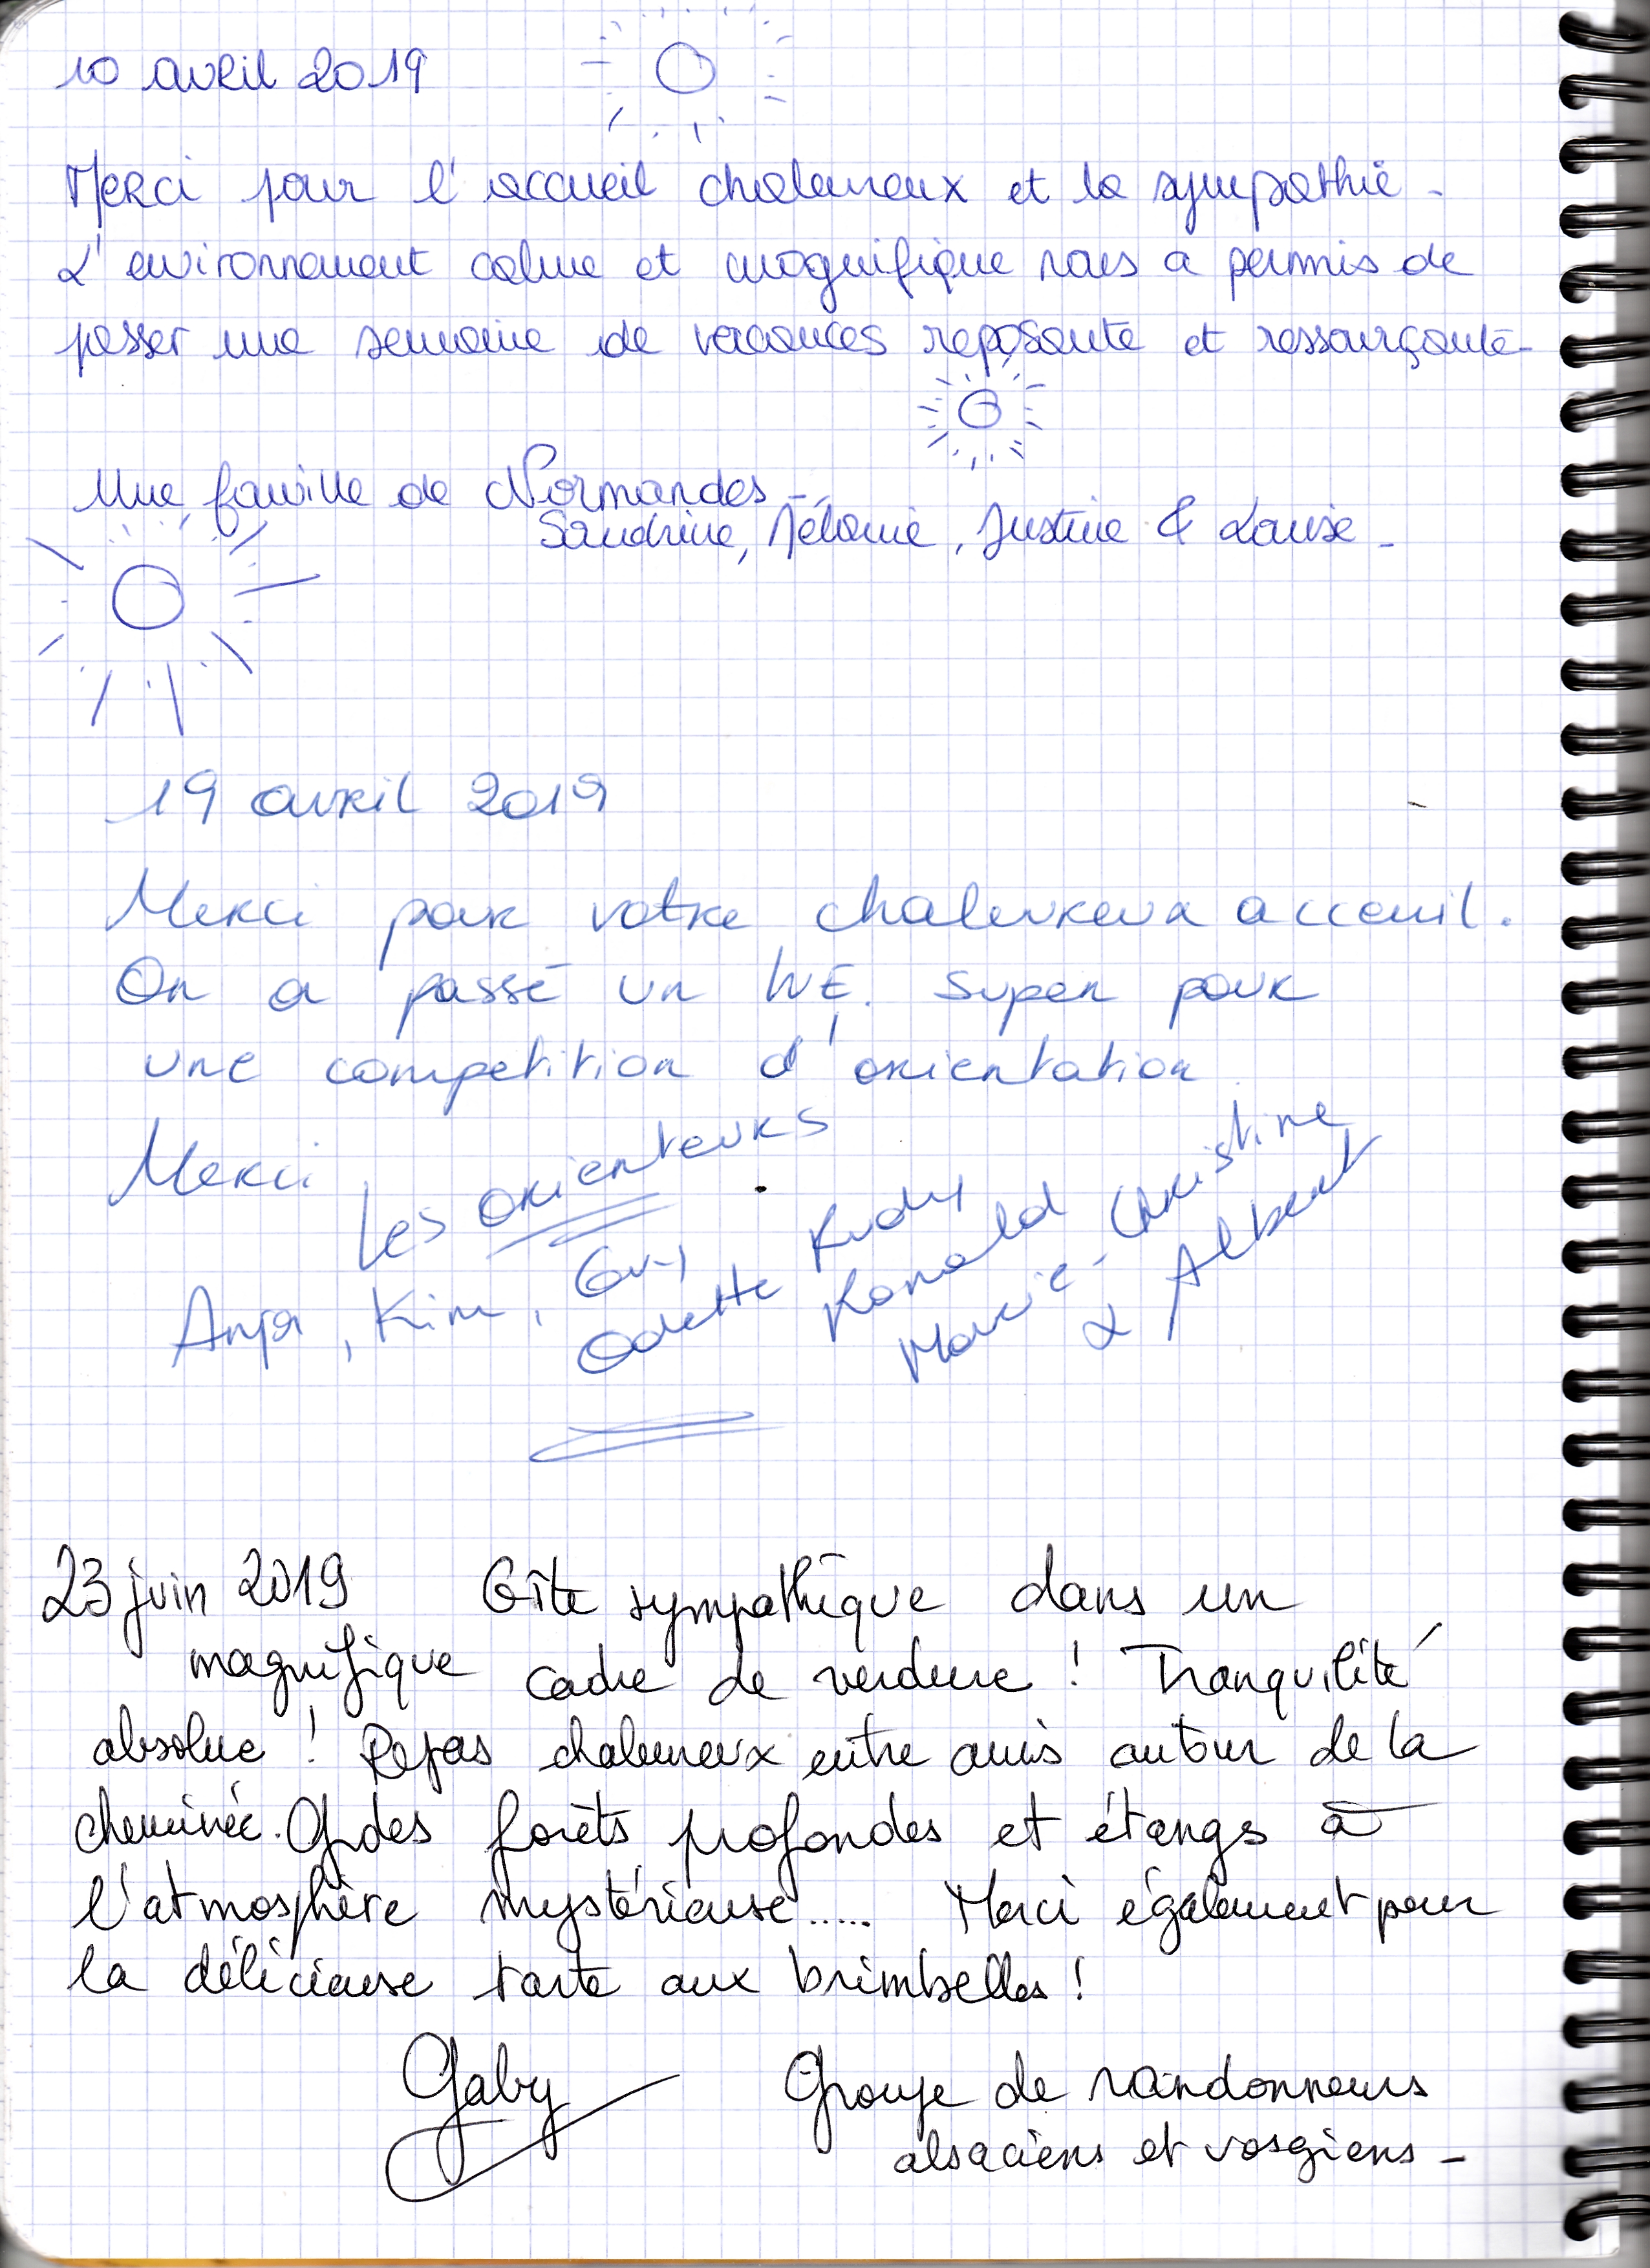 10 avril 2019
Merci pour l'accueil chaleureux et la sympathie.
L'environnement calme et magnifique nous a permis de
passer une semaine de vacances reposante et ressourçante.
Une famille de Normandes
Sandrine, Mélanie, Justine & Louise.
19 avril 2019
Merci pour votre chaleureux acceuil.
On a passé un WE. super pour
une competition d'orientation.
Merci
Les orienteurs
Anja, Kim, Guy
Odette Rudy
Ronald
Marie-Christine
& Albert
23 juin 2019 Gîte sympathique dans un
magnifique cadre de verdure ! Tranquilité
absolue ! Repas chaleureux entre amis autour de la
cheminée. Gdes forêts profondes et étangs à
l'atmosphère mystérieuse..... Merci également pour
la délicieuse tarte aux brimbelles !
Gaby Groupe de randonneurs
alsaciens et vosgiens -